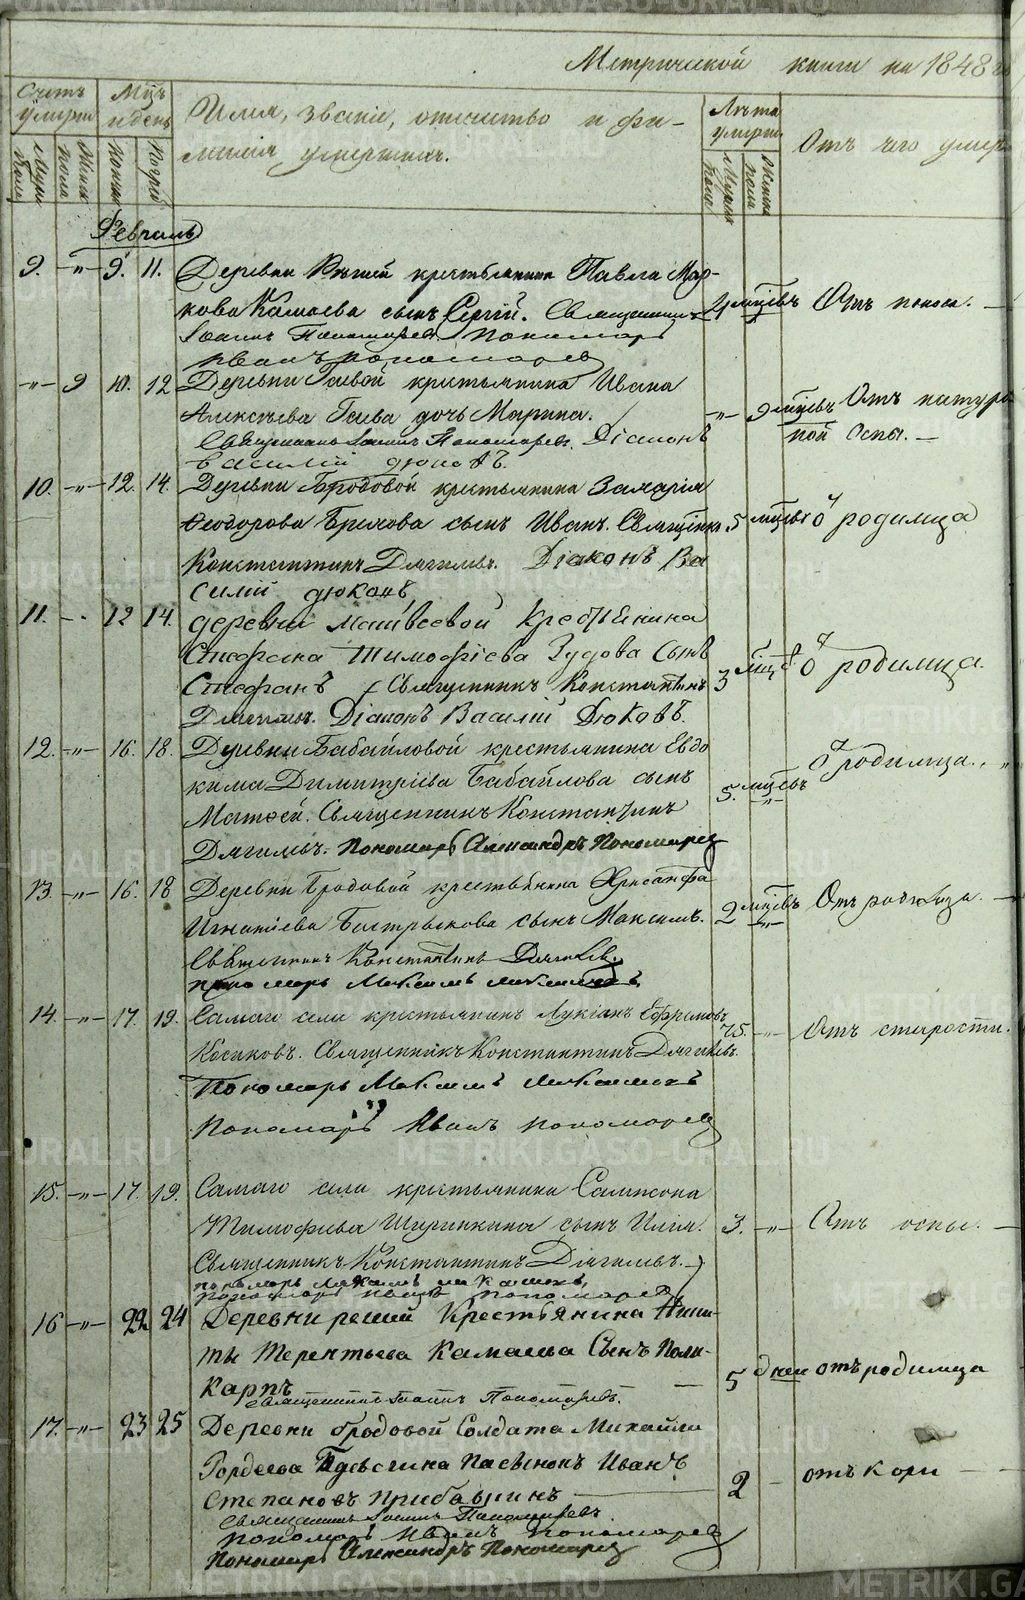 Метрической книги на 1848
Счетъ умерш.
Мцъ и день
Имя, званіе, отчество и фа-
милія умершихъ.
Лѣта умерш.
Отъ чего умер
Муж. пола
Женс. пола
Муж. пола
Женс. пола
Февраль
9. -"- 9. 11. Деревни крестьянина Павла Мар-
кова Камаева сынъ Сергій. Священникъ 4 мцсвъ Отъ поноса. —
Іоаннъ Пономаревъ Пономарь
Иванъ Пономаревъ
-"- 9 10. 12 Деревни Гаевой крестьянина Ивана
Алексѣева Гаева дочь Марина. -"- 9 мцсвъ Отъ натураль
ной Оспы. —
Священникъ Іоаннъ Пономаревъ. Діаконъ
Василій Дюковъ.
10. -"- 12. 14. Деревни Бродовой крестьянина Захарія
Ѳеодорова сынъ Иванъ. Священникъ 5 мцсвъ О родимца
Константинъ Дягилевъ. Діаконъ Ва
силій Дюковъ
11. - . 12 14. деревни Матвеевой Крестьянина
Стефана Тимофіева Зудова Сынъ
Стефанъ Священникъ Константинъ 3 мцсв О родимца.
Дягилевъ. Діаконъ Василій Дюковъ.
12. -"- 16. 18. Деревни Бабайловой крестьянина Евдо
О родимца.
кима Димитріева Бабайлова сынъ 5. мцсвъ
Матѳей. Священникъ Константинъ
Дягилевъ. Пономарь Александръ Пономарев
13. -"- 16. 18 Деревни Бродовой крестьянина Хрисанфа
Игнатіева Бастрыкова сынъ Максимъ. 2 мцсвъ Отъ родимца. —
Священникъ Константинъ Дягилевъ.
пономарь Максимъ
14. -"- 17. 19. Самаго села крестьянинъ Лукіанъ Ефримовъ
Косиковъ. Священникъ Константинъ Дягилевъ. 75. -"- Отъ старости.
Пономарь Максимъ
Пономарь Иванъ Пономаревъ
15. -"- 17. 19. Самаго села крестьянина Сампсона
Тимофѣева Ширинкина сынъ Илія. 3. -"- Отъ оспы. —
Священникъ Константинъ Дягилевъ.
пономарь Максимъ
пономарь Иванъ Пономаревъ
16 -"- 22 24 Деревни Крестьянина Ники-
ты Терентьева Камаева Сынъ Поли-
карпъ — 5 дней отъ родимца
Священникъ Іоаннъ Пономаревъ.
17. -"- 23 25 Деревни бродовой Солдата Михайли
Гордеева пасынокъ Иванъ
Степановъ 2 - отъ кори — —
Священникъ Іоаннъ Пономаревъ.
Пономарь Иванъ Пономаревъ
Пономарь Александръ Пономарев
METRIKI.GASO-URAL.RU